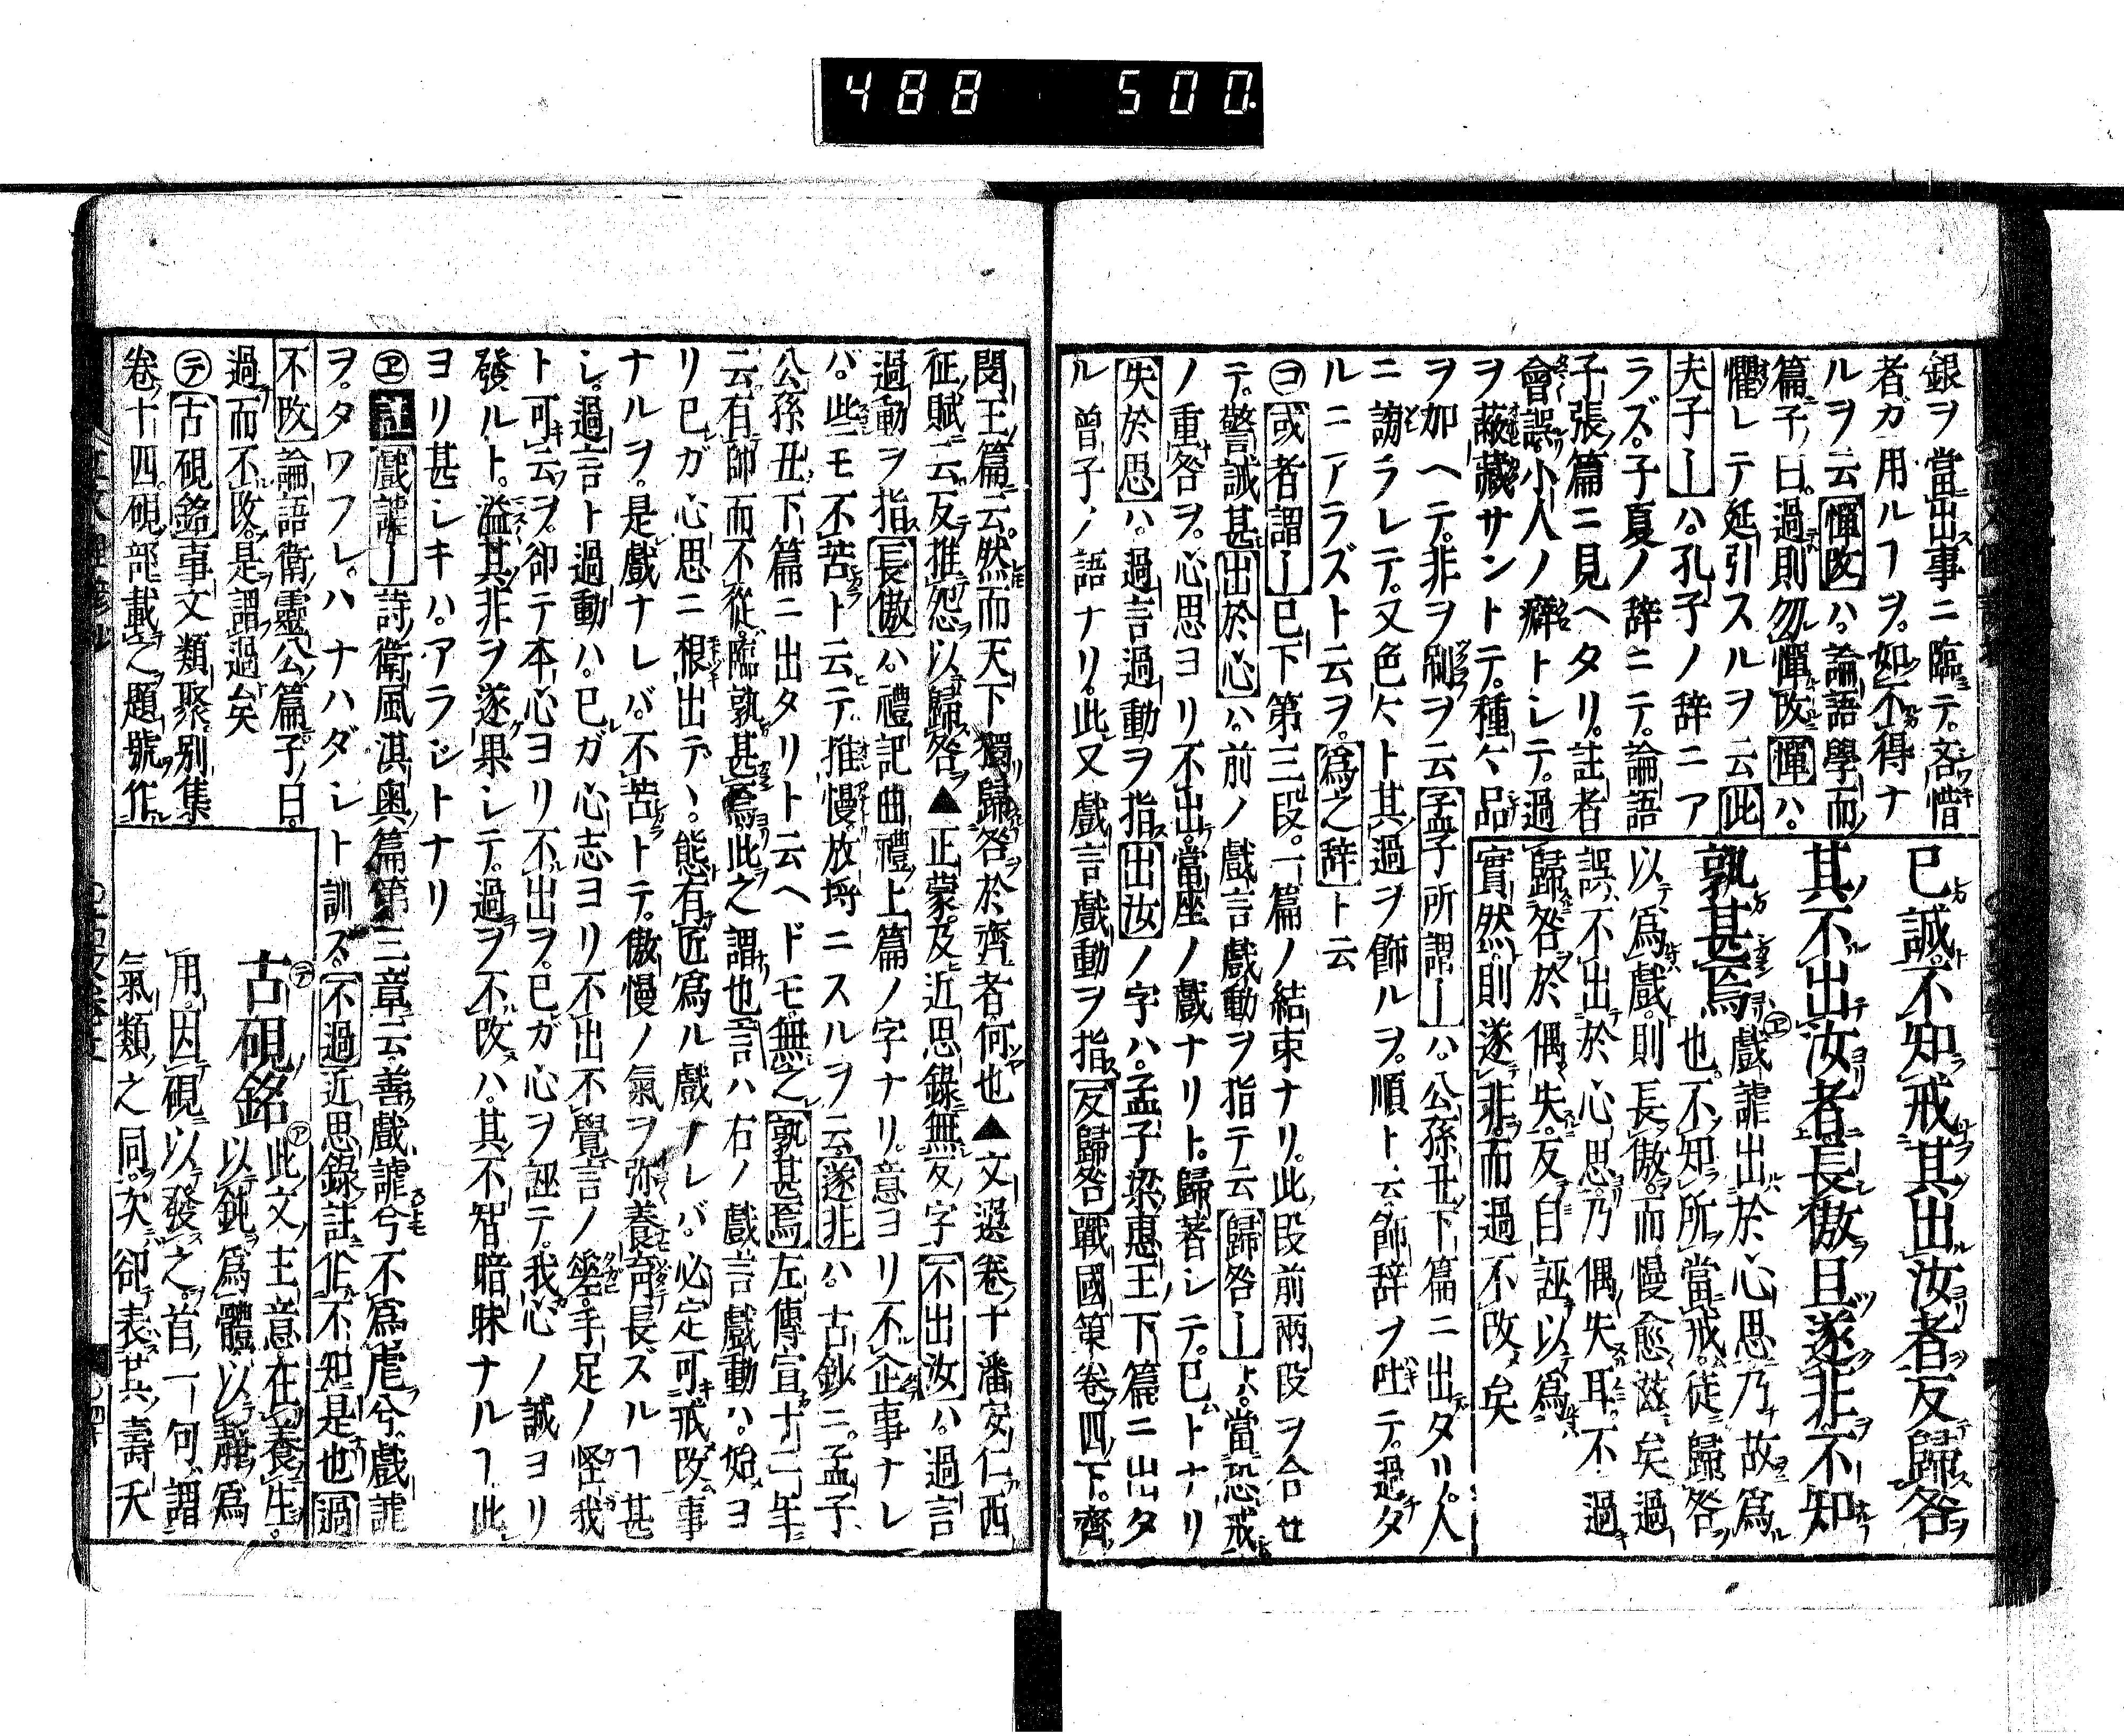 488 500
銀ヲ當ニ出ス事ニ臨テ吝惜
者ガ用ルヿヲ。如不得ナ
ルヲ云憚改ハ。論語學而
篇子曰。過則勿憚改憚ハ。
懼レテ延引スルヲ云此
夫子ーハ。孔子ノ辞ニア
ラズ。子夏ノ辞ニテ。論語
子張篇ニ見ヘタリ。註者
會誤。小人ノ癖トシテ。過
ヲ蔽藏サントテ。種々品
ヲ加ヘテ。非ヲ刷ヲ云孟子所謂ーハ。公孫丑下篇ニ出タリ。人
ニ謗ラレテ。又色々ト其過ヲ飾ルヲ。順ト云。飾辞ヲ吐テ。過タ
ルニアラズト云ヲ。爲之辞ト云
己誠。不知戒其出汝者。反歸咎
其不出汝者。長傲且遂非。不知
孰甚焉
戲謔出於心思。乃故爲
也。不知所當戒。徒歸咎
以爲戲。則長傲。而慢愈滋矣。過
誤。不出於心思。乃偶失耳。不過
歸咎於偶失。反自誣以爲
實然。則遂非。而過不改矣
㋙或者謂ー已下第三段。一篇ノ結束ナリ。此段前兩段ヲ合せ
テ。警誡甚出於心ハ。前ノ戲言戲動ヲ指テ云歸咎ーハ。當恐戒
ノ重咎ヲ。心思ヨリ不出。當座ノ戲ナリト。歸著シテ。已トナリ
失於思ハ。過言過動ヲ指出汝ノ字ハ。孟子梁惠王下篇ニ出タ
ル曾子ノ語ナリ。此又戲言戲動ヲ指反歸咎戰國策卷四下。齊
閔王篇云。然而天下獨歸咎於齊者。何也▲文選卷十潘安仁西
征賦云。反推怨以歸咎▲正蒙及近思錄無反字不出汝ハ。過言
過動ヲ指長傲ハ。禮記曲禮上篇ノ字ナリ。意ヨリ不企事ナレ
バ。些モ不苦ト云テ。推慢放埒ニスルヲ云遂非ハ。古鈔ニ。孟子
公孫丑下篇ニ出タリト云ヘドモ。無之孰甚焉左傳宣十二年
云。有帥而不從。臨孰甚焉。此之謂也言ハ右ノ戲言戲動ハ。始ヨ
リ已ガ心思ニ根出デヽ。能有匠爲ル戲ナレバ。必定可戒改事
ナルヲ。是戲ナレバ。不苦トテ。傲慢ノ氣ヲ弥養育長スルヿ甚
シ。過言ト過動ハ。已ガ心志ヨリ不出。不覺言ノ差。手足ノ怪我
ト可云ヲ。卻テ本心ヨリ不出ヲ。已ガ心ヲ誣テ。我心ノ誠ヨリ
發ルト。溢其非ヲ遂果シテ。過ヲ不改ハ。其不智暗昧ナルヿ此
ヨリ甚シキハ。アラジトナリ
㋓註戲謔ー詩衛風淇奥篇第三章云。善戲謔兮。不爲虐兮。戲謔
ヲ。タワフレ。ハナハダシト訓ス。不過近思錄註作不知是也過
不改論語衛靈公篇子曰。
過而不改。是謂過矣
㋢古硯銘事文類聚別集
卷十四。硯部載之。題號作
古硯銘
此文主意。在養生。
以鈍爲體。以靜爲
用。因硯以發之。首一句。謂
氣類之同。次卻表其壽夭